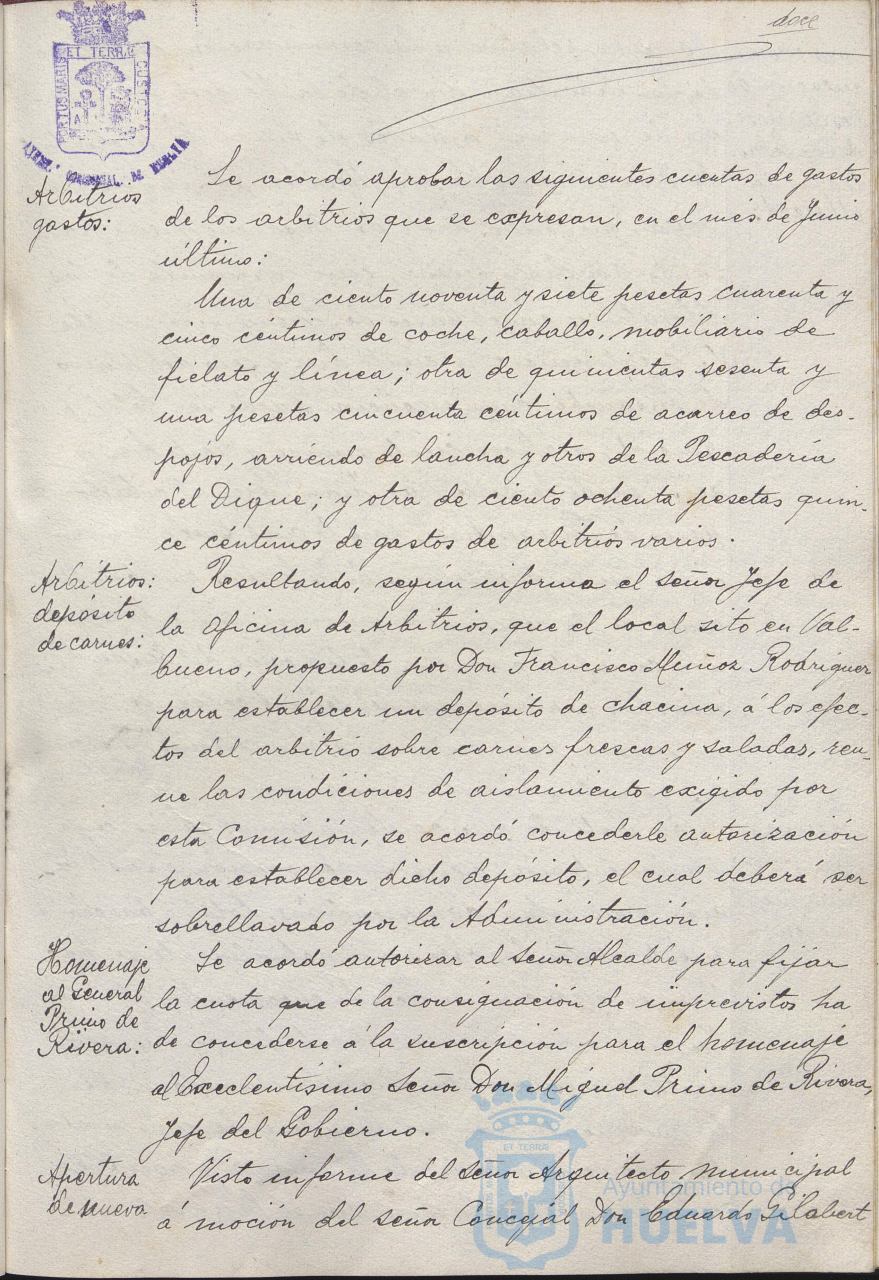 doce
PORTUS MARIS ET TERRAE CUSTODIA
AYUNT. MUNICIPAL DE HUELVA
Arbitrios
gastos:
Se acordó aprobar las siguientes cuentas de gastos
de los arbitrios que se expresan, en el més de Junio
último:
Una de ciento noventa y siete pesetas cuarenta y
cinco céntimos de coche, caballo, mobiliario de
fielato y línea; otra de quinientas sesenta y
una pesetas cincuenta céntimos de acarreo de des-
pojos, arriendo de lancha y otros de la Pescadería
del Dique; y otra de ciento ochenta pesetas quin-
ce céntimos de gastos de arbitrios varios.
Arbitrios:
depósito
de carnes:
Resultando, según informa el señor Jefe de
la Oficina de Arbitrios, que el local sito en Val-
bueno, propuesto por Don Francisco Muñoz Rodriguez
para establecer un depósito de chacina, á los efec-
tos del arbitrio sobre carnes frescas y saladas, reu-
ne las condiciones de aislamiento exigido por
esta Comisión, se acordó concederle autorización
para establecer dicho depósito, el cual deberá ser
sobrellavado por la Administración.
Homenaje
al General
Primo de
Rivera:
Se acordó autorizar al Señor Alcalde para fijar
la cuota que de la consignación de imprevistos ha
de concederse á la suscripción para el homenaje
al Excelentísimo Señor Don Miguel Primo de Rivera,
Jefe del Gobierno.
Apertura
de nueva
Visto informe del señor Arquitecto municipal
á moción del señor Concejal Don Eduardo Gilabert
ET TERRAE
Ayuntamiento de
HUELVA